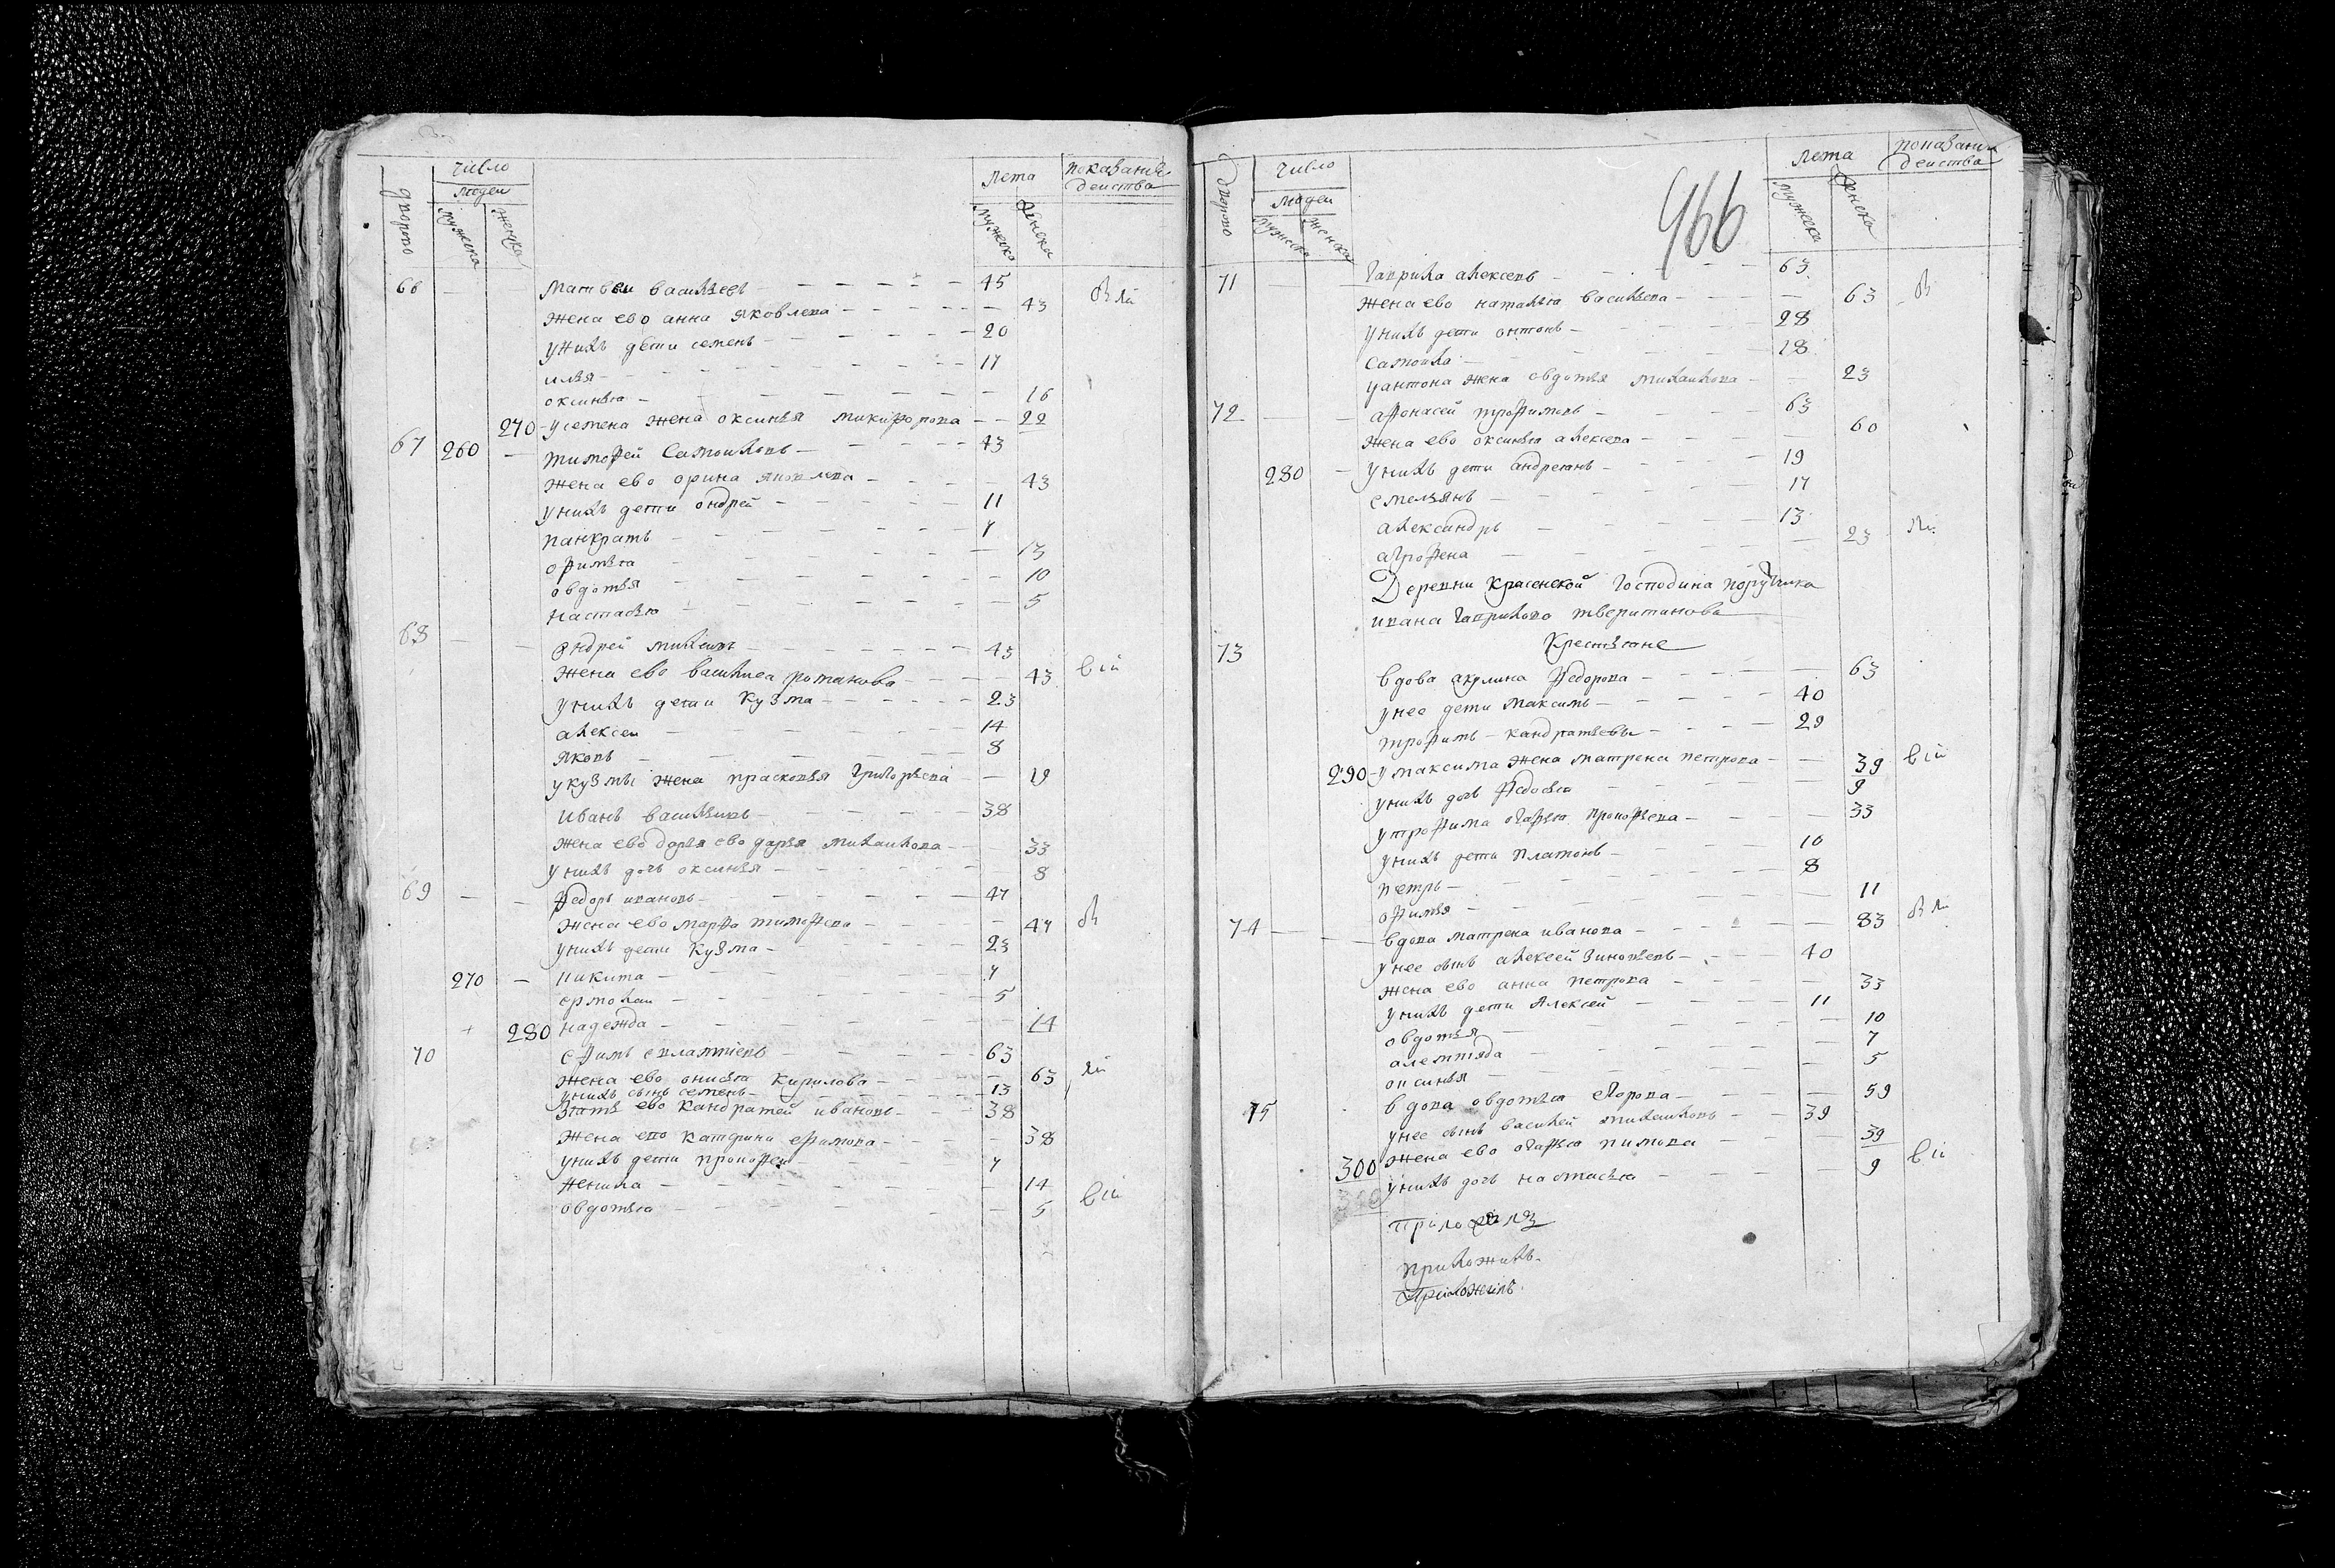 число
людей
дворовъ
мужеска
женска
лета
мужеска
женска
показание
действа
66 матвеи василевъ 45
жена ево анна яковлева 43
унихъ дети семенъ 20
илья 17
оксинья 16
270 усемена жена оксинья микифорова 22
67 260 тимофей самоиловъ 43
жена ево орина яковлева 43
унихъ дети ондрей 11
панкратъ 7
офимья 13
овдотья 10
настасья 5
68 ондрей 43
жена ево василиса романова 43
унихъ дети кузма 23
алексеи 14
яковъ 8
укузмы жена прасковья григорьева 19
иванъ васильивъ 38
жена ево дарья ево дарья михаилова 33
унихъ дочь оксинья 8
69 федоръ ивановъ 47
жена ево марфа тимофева 47
унихъ дети кузма 23
270 никита 7
ермолаи 5
280 надежда 14
70 ефимъ евлантіевъ 63
жена ево онисья кирилова 63
унихъ сынъ семенъ 13
зять ево кандратей ивановъ 38
жена ево катерина ефимова 38
унихъ дети прокофеи 7
14
овдотья 5
466
число
людей
дворовъ
мужеска
женска
лета
мужеска
женска
показании
действа
71 гаврила алексевъ 63
жена ево наталья василева 63
унихъ дети онтонъ 28
самоила 18
уантона жена овдотья михаилова 23
72 афонасей трофимовъ 63
жена ево оксинья алексева 60
280 унихъ дети андреянъ 19
емельянъ 17
александръ 13
агрофена 23
Деревни красенской господина поручика
ивана гаврилова тверитинова
крестьяне
73 вдова акулина федорова 63
унее дети максимъ 40
трофимъ кандратьевы 29
290 умаксима жена матрена петрова 39
унихъ дочь федосья 9
утрофима огафья прокофьева 33
унихъ дети платонъ 10
петръ 8
офимья 11
74 вдова матрена иванова 83
унее сынъ алексей зиновьевъ 40
жена ево анна петрова 33
унихъ дети алексей 11
овдотья 10
алемтяда 7
оксинья 5
75 вдова овдотья егорова 59
унее сынъ василей михаиловъ 39
жена ево огафья пимова 39
300 унихъ дочь настасья 9
приложилъ